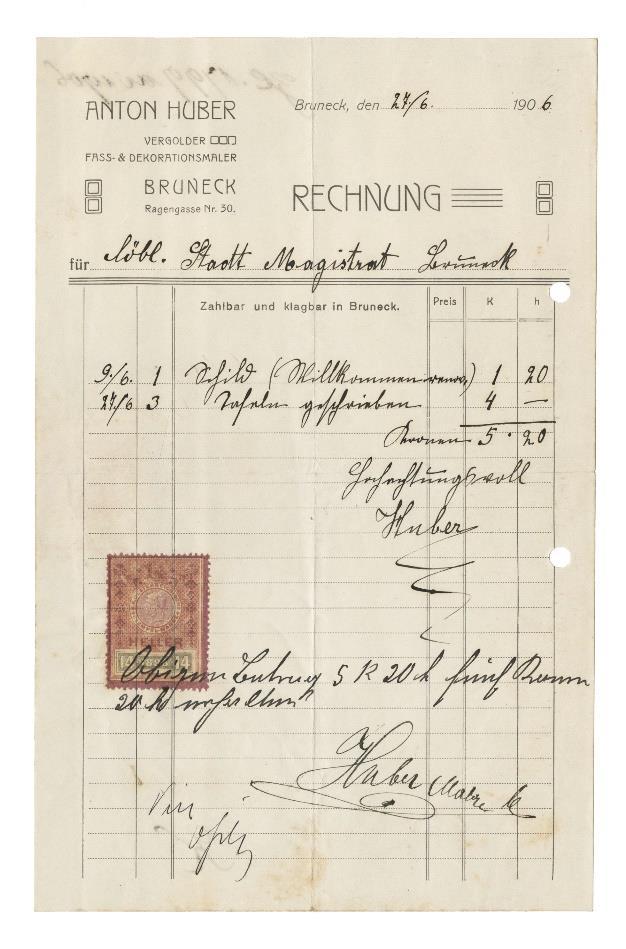 ANTON HUBER
VERGOLDER
FASS- & DEKORATIONSMALER
BRUNECK
Ragengasse Nr. 30.
Bruneck, den 27/6. 1906
RECHNUNG
für löbl. Stadt Magistrat Bruneck
Zahlbar und klagbar in Bruneck. Preis K h
9./6. 1 Schild (Willkommen renov.) 1 20
27/6 3 Tafeln geschrieben 4 —
Kronen 5 · 20
Hochachtungsvoll
Huber
HELLER
Obigen Betrag 5 K 20 h fünf Kronen
20 h erhalten
Huber Maler